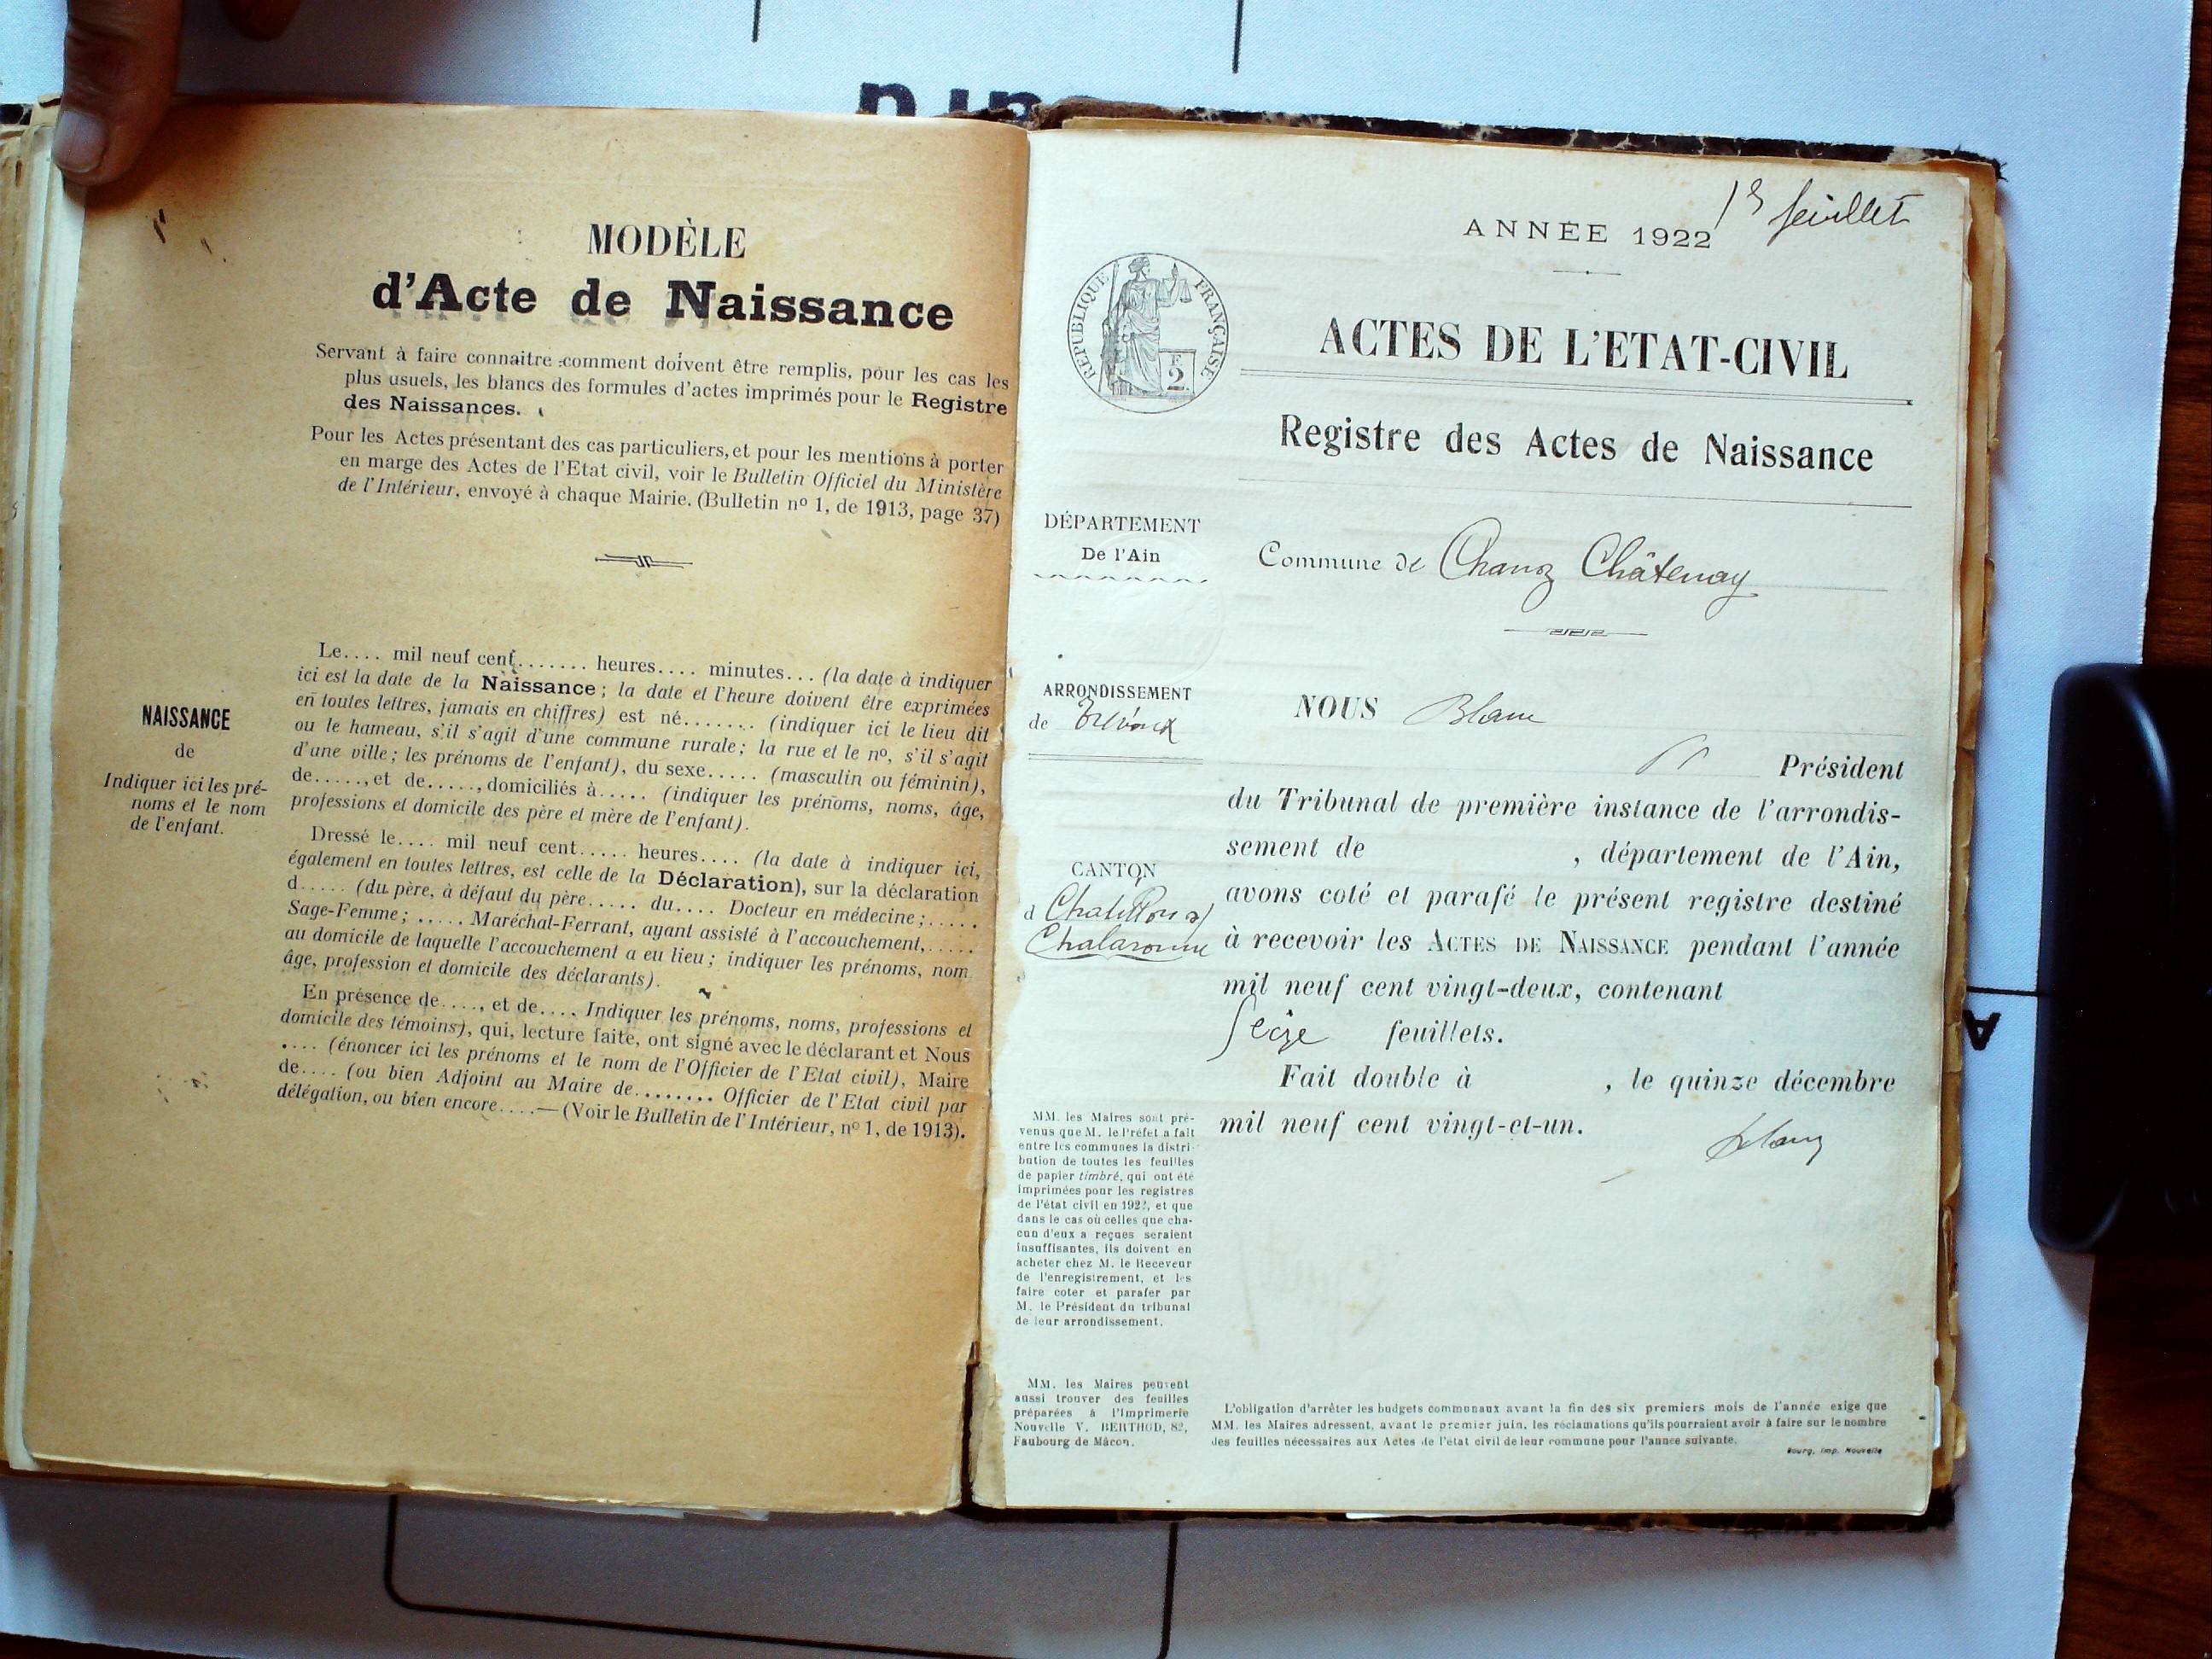 MODÈLE
d'Acte de Naissance
Servant à faire connaitre comment doivent être remplis, pour les cas les
plus usuels, les blancs des formules d'actes imprimés pour le Registre
des Naissances.
Pour les Actes présentant des cas particuliers, et pour les mentions à porter
en marge des Actes de l'Etat civil, voir le Bulletin Officiel du Ministère
de l'Intérieur, envoyé à chaque Mairie. (Bulletin nº 1, de 1913, page 37)
NAISSANCE
de
Indiquer ici les pré-
noms et le nom
de l'enfant.
Le.... mil neuf cent....... heures.... minutes... (la date à indiquer
ici est la date de la Naissance; la date et l'heure doivent être exprimées
en toutes lettres, jamais en chiffres) est né....... (indiquer ici le lieu dit
ou le hameau, s'il s'agit d'une commune rurale; la rue et le nº, s'il s'agit
d'une ville; les prénoms de l'enfant), du sexe..... (masculin ou féminin),
de....., et de....., domiciliés à..... (indiquer les prénoms, noms, âge,
professions et domicile des père et mère de l'enfant).
Dressé le.... mil neuf cent..... heures.... (la date à indiquer ici,
également en toutes lettres, est celle de la Déclaration), sur la déclaration
d..... (du père, à défaut du père..... du.... Docteur en médecine;.....
Sage-Femme; ..... Maréchal-Ferrant, ayant assisté à l'accouchement,.....
au domicile de laquelle l'accouchement a eu lieu; indiquer les prénoms, nom
âge, profession et domicile des déclarants).
En présence de...., et de.... Indiquer les prénoms, noms, professions et
domicile des témoins), qui, lecture faite, ont signé avec le déclarant et Nous
.... (énoncer ici les prénoms et le nom de l'Officier de l'Etat civil), Maire
de.... (ou bien Adjoint au Maire de........ Officier de l'Etat civil par
délégation, ou bien encore....— (Voir le Bulletin de l'Intérieur, nº 1, de 1913).
1er feuillet
ANNÉE 1922
RÉPUBLIQUE FRANÇAISE
2
ACTES DE L'ETAT-CIVIL
Registre des Actes de Naissance
DÉPARTEMENT
De l'Ain
Commune de Chanoz Châtenay
ARRONDISSEMENT
de Trévoux
NOUS Blanc
Président
du Tribunal de première instance de l'arrondis-
sement de , département de l'Ain,
CANTON
d Chatillon s/
Chalaronne
avons coté et parafé le présent registre destiné
à recevoir les ACTES DE NAISSANCE pendant l'année
mil neuf cent vingt-deux, contenant
Seize feuillets.
Fait double à , le quinze décembre
mil neuf cent vingt-et-un.
Blanc
MM. les Maires sont pré-
venus que M. le Préfet a fait
entre les communes la distri-
bution de toutes les feuilles
de papier timbré, qui ont été
imprimées pour les registres
de l'état civil en 1922, et que
dans le cas où celles que cha-
cun d'eux a reçues seraient
insuffisantes, ils doivent en
acheter chez M. le Receveur
de l'enregistrement, et les
faire coter et parafer par
M. le Président du tribunal
de leur arrondissement.
MM. les Maires peuvent
aussi trouver des feuilles
préparées à l'Imprimerie
Nouvelle V. BERTHOD, 82,
Faubourg de Mâcon.
L'obligation d'arrêter les budgets communaux avant la fin des six premiers mois de l'année exige que
MM. les Maires adressent, avant le premier juin, les réclamations qu'ils pourraient avoir à faire sur le nombre
des feuilles nécessaires aux Actes de l'état civil de leur commune pour l'année suivante.
Bourg, Imp. Nouvelle